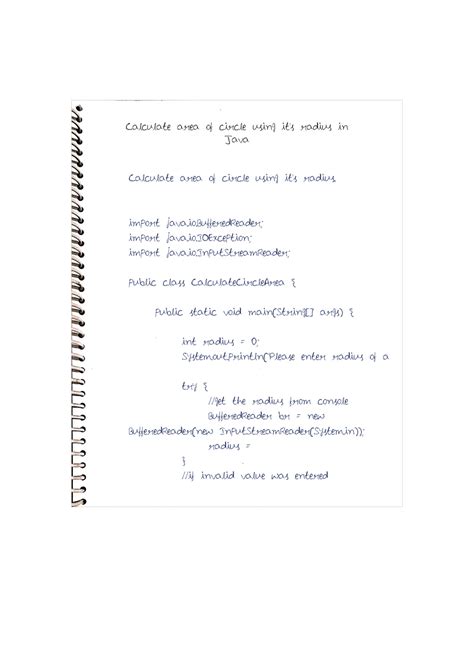 Calculate area of circle using it's radius in
Java
Calculate area of circle using it's radius
import java.io.BufferedReader;
import java.io.IOException;
import java.io.InputStreamReader;
Public class CalculateCircleArea {
Public static void main(String[] args) {
int radius = 0;
System.out.println("Please enter radius of a
try {
//get the radius from console
BufferedReader br = new
BufferedReader(new InputStreamReader(System.in));
radius =
}
//if invalid value was entered